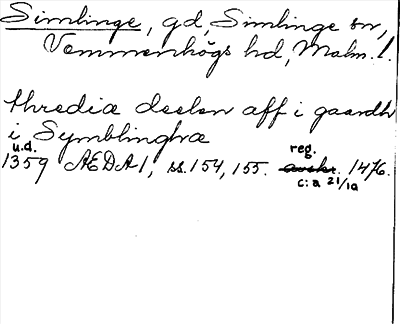 Simlinge, gd, Simlinge sn,
Vemmenhögs hd, Malm. l.
thrediæ deelen aff i gaardh
i Symblinghæ
u.d. reg.
1359 ÆDA1, ss. 154, 155. avskr. 1476.
c:a 21/10